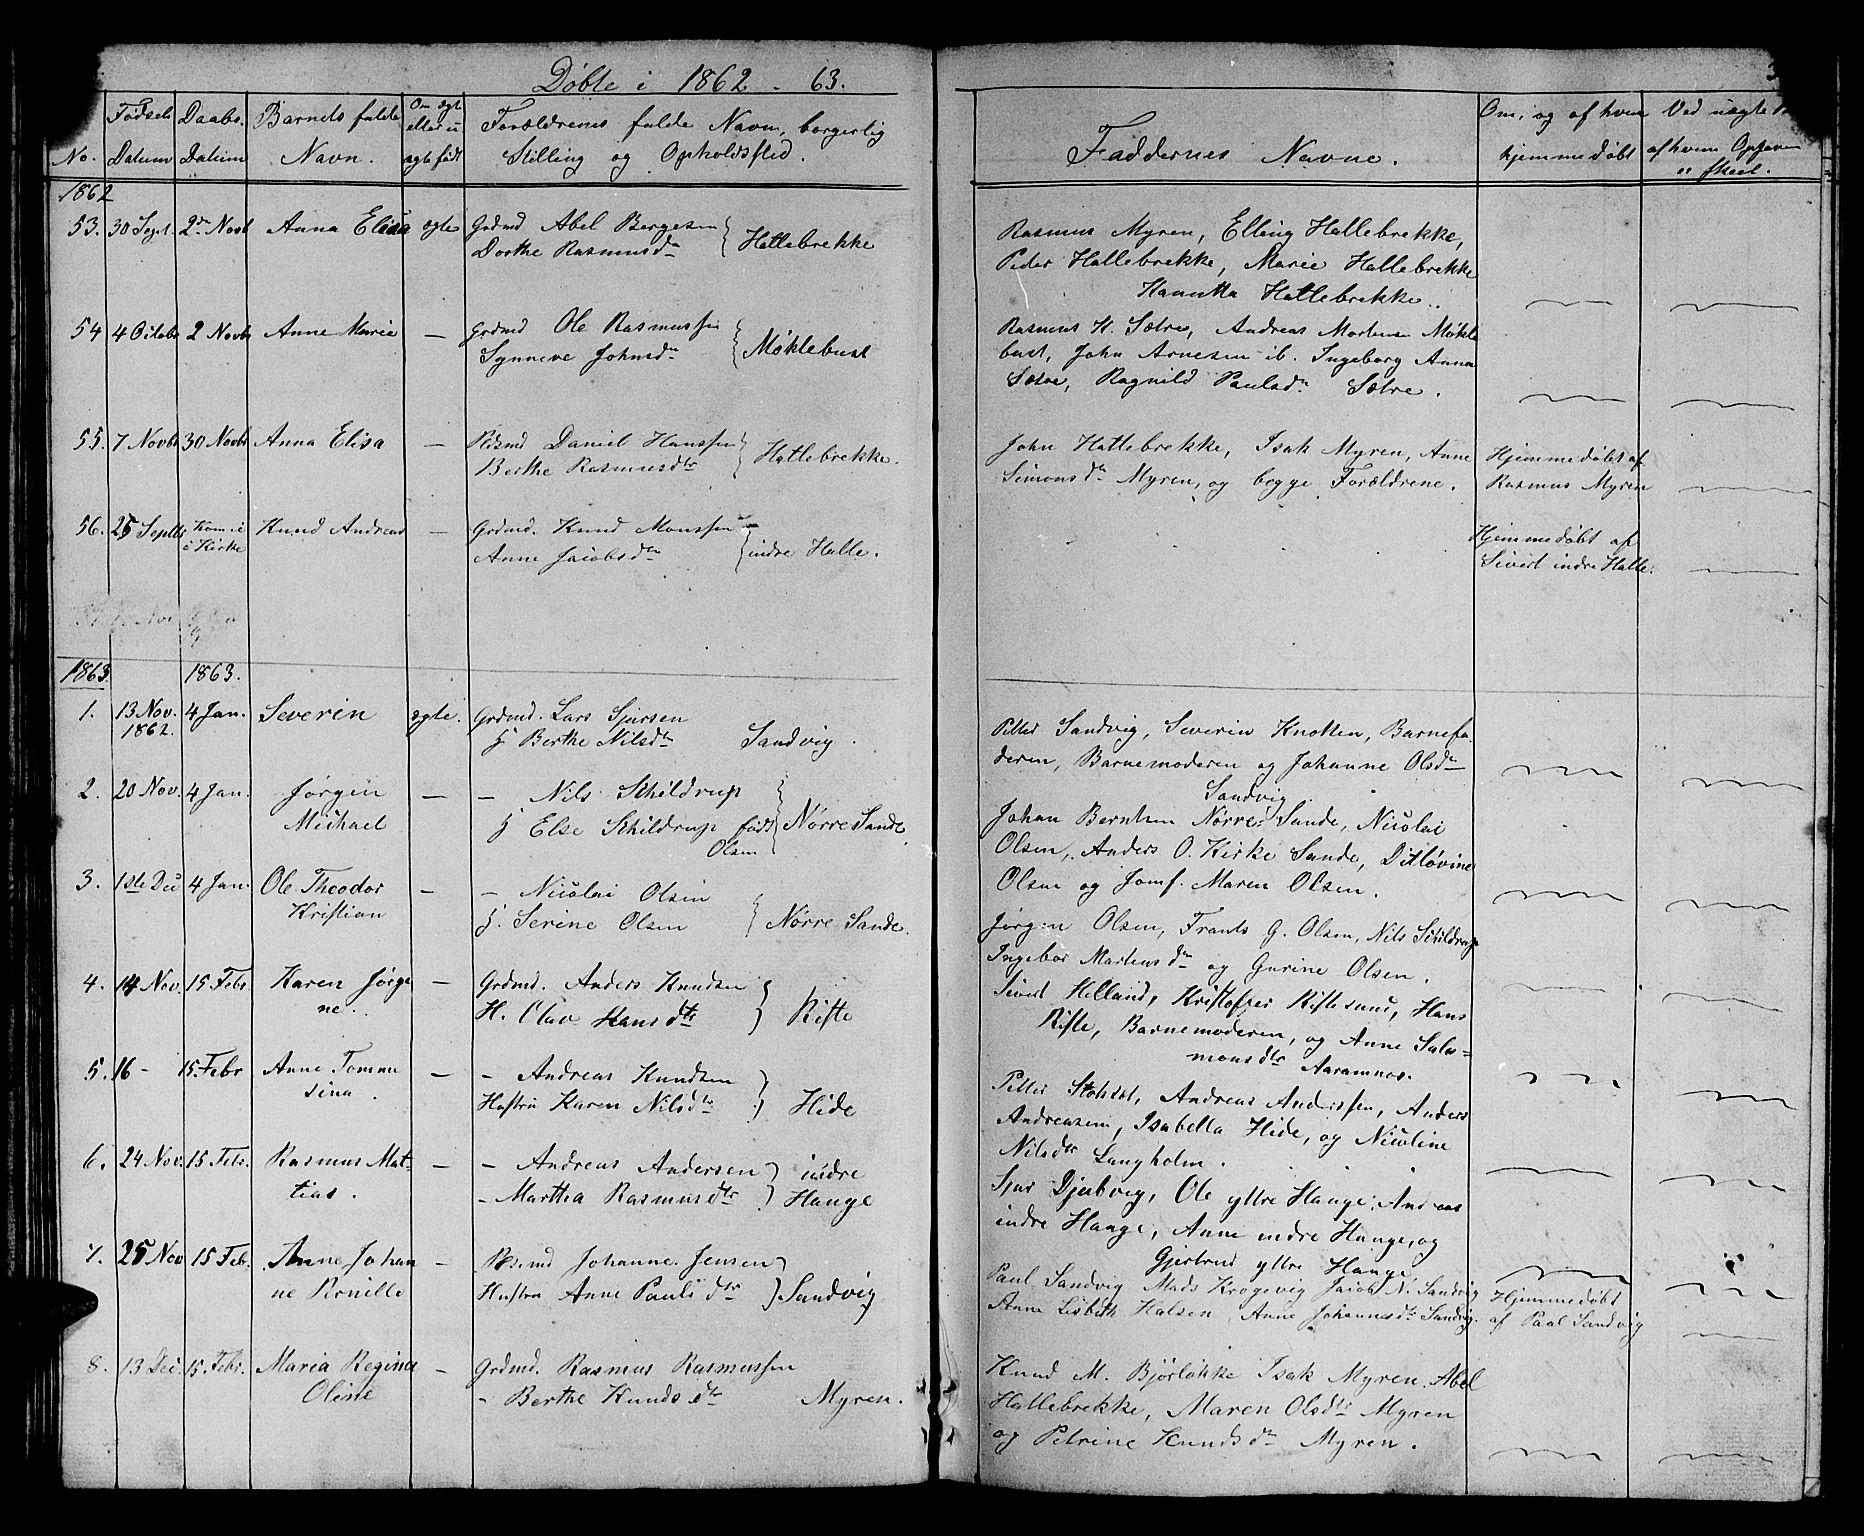 Døbte i 1862 - 63.
No.
Fødsels Datum
Daabs Datum
Barnets fulde Navn.
Om ægte eller u ægte født
Forældrenes fulde Navn, borgerlig
Stilling og Opholdssted.
Faddernes Navne.
Om, og af hvem
hjemmedøbt
Ved uægte
af hvem Opgaven
er skeet.
1862
53. 30 Sept. 2den Novb Anna Elisa ægte Grdmd Abel Bergesen
Dorthe Rasmusdtr } Hallebrekke
Rasmus Myren, Elling Hallebrekke,
Peder Hallebrekke, Marie Hallebrekke
Hallebrekke.
54 4 Octobr 2 Novbr Anne Marie — Grdmd Ole Rasmussen
Synneve Johnsdtr } Møklebust
Rasmus H. Sætre, Andreas Martinsen Møkle
bust, John Arnesen ib. Ingeborg Anna
Sætre, Ragnild Paulsdtr Sætre.
55. 7 Novbr 30 Novbr Anna Elisa — Daniel Hanssen
Berthe Rasmusdtr } Hallebrekke.
John Hallebrekke, Isak Myren, Anne
Simonsdtr Myren, og begge Forældrene.
Hjemmedøbt af
Rasmus Myren
56. 25 Septbr Kom ei
i Kirke
Knud Andreas — Grdmd. Knud Monssen
Anne Jacobsdtr } indre Halle.
Hjemmedøbt af
Sivert indre Halle.
1863 1863.
1. 13 Nov.
1862.
4 Jan. Severin ægte. Grdmd. Lars Sjursen
H Berthe Nilsdtr Sandvig.
Petter Sandvig, Severin Knotten, Barnefa-
deren, Barnemoderen og Johanne Olsdtr
Sandvig.
2. 20 Nov. 4 Jan. Jørgen
Michael
— — Nils Schildrup
H Else Schildrup født
Olsen
} Nørre Sande.
Johan Berntsen Nørre-Sande, Nicolai
Olsen, Anders O. Kirke Sande, Ditløvine
Olsen og Jomf. Maren Olsen.
3. 1ste Dec 4 Jan. Ole Theodor
Kristian
— — Nicolai Olsen
H. Serine Olsen } Nørre Sande.
Jørgen Olsen, Frants G. Olsen, Nils Schildrup
Ingebor Martensdtr og Gurine Olsen.
4. 14 Nov. 15 Febr Karen Jørge
ne.
— Grdmd. Anders Knudsen
H. Olav Hansdtr } Riste
Sivert Helland, Kristofer Ristesund, Hans
Riste, Barnemoderen, og Anne Salo=
monsdtr Aaramnes.
5. 16 - 15. Febr Anne Tomma
sina.
— - Andreas Knudsen
Hustru Karen Nilsdtr } Hide
Petter Andreas Anderssen, Anders
Andreasen, Isabella Hide, og Nicoline
Nilsdtr Langholm.
6. 24 Nov. 15 Febr. Rasmus Mat-
tias.
— - Andreas Andersen
- Martha Rasmusdtr } indre
Hauge
Sjur Djubvig, Ole yttre Hauge, Andreas
indre Hauge, Anne indre Hauge, og
Gjertrud yttre Hauge
7. 25 Nov 15 Feb. Anne Johan
ne Pernille
— Johannes Jensen
Hustru Anne Paulsdtr } Sandvig
Paul Sandvig Mads Krogevig Jacob N. Sandvig
Anne Lisbeth Halsen, Anne Johannesdtr Sandvig.
Hjemmedøbt
af Paal Sandvig
8. 13 Dec. 15. Febr. Maria Regina
Oline
— Grdmd. Rasmus Rasmussen
- Berthe Knudsdtr Myren.
Knud M. Bjørløkke Isak Myren. Abel
Hallebrekke, Maren Olsdtr Myren
og Petrine Knudsdtr Myren.